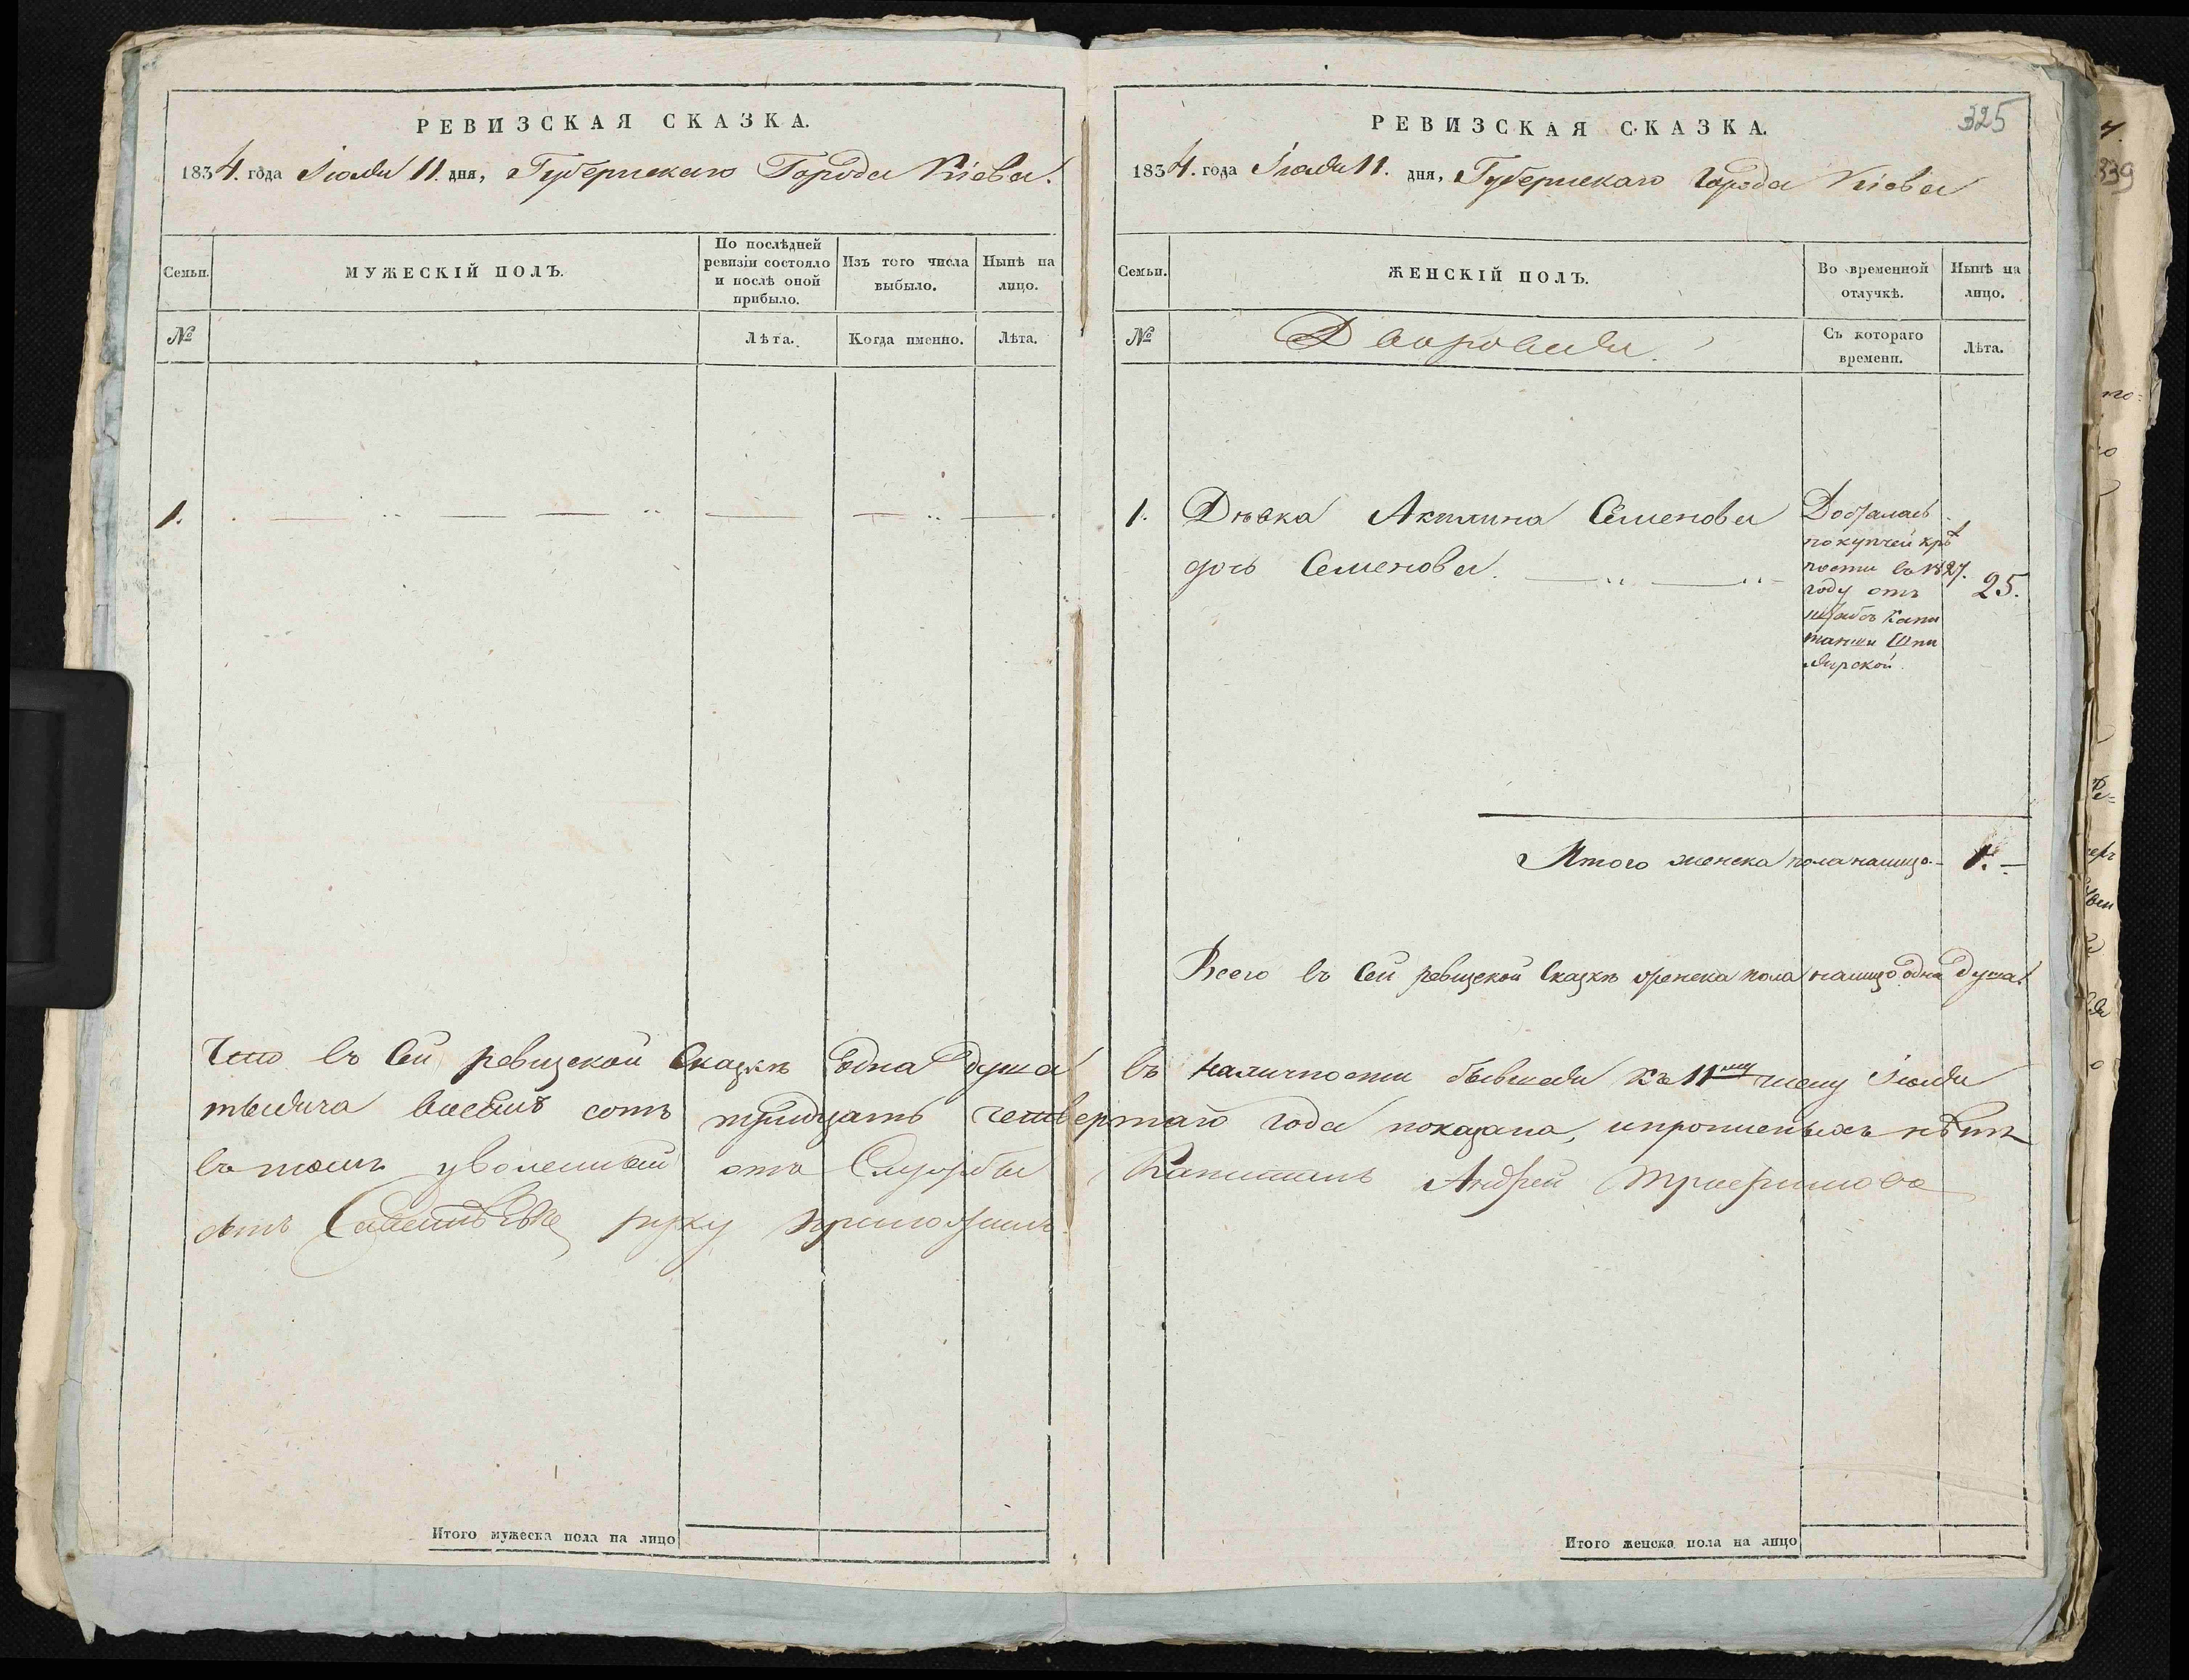 РЕВИЗСКАЯ СКАЗКА.
1834. года Іюля 11. дня, Губернскаго Города Кіева.
Семьи.
МУЖЕСКІЙ ПОЛЪ.
По послѣдней ревизіи состояло и послѣ оной прибыло.
Изъ того числа выбыло.
Нынѣ на лицо.
№
Лѣта.
Когда именно.
Лѣта.
1.
Что въ сей ревизской Сказкѣ одна душа
тысяча восемь сотъ тридцать четвер
въ томъ уволенный отъ Службы
руку приложилъ
Итого мужеска пола на лицо
325
РЕВИЗСКАЯ СКАЗКА.
1834. года Іюля 11. дня, Губернскаго города Кіева
Семьи.
ЖЕНСКІЙ ПОЛЪ.
Во временной отлучкѣ.
Нынѣ на лицо.
№
Дворовыя.
Съ котораго времени.
Лѣта.
1. Дѣвка Акилина Семенова
дочь Семенова.
Досталась
по купчей крѣ
пости въ 1827.
году отъ
штабсъ Капи
танши
25.
Итого женска пола налицо 1.
Всего въ Сей ревизской Сказкѣ женска пола налицо одна душа.
въ наличности бывшая къ 11му числу Іюля
таго года показана, и прописныхъ нѣтъ
Капитанъ Андрей
Итого женска пола на лицо
339